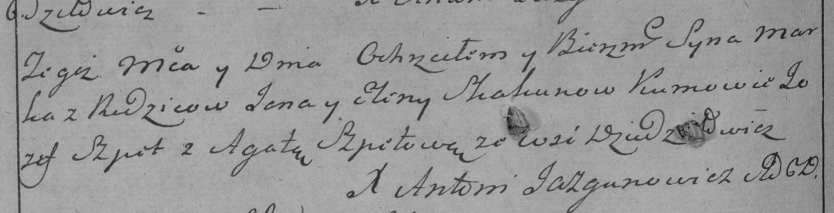 Dziełdwicz - -
Tegoż Mca y Dnia Ochrzciłem y Bierzm Syna Mar
ka z Rodzicow Jana y Eleny Skakunow Kumowie Jo
zef Szpet z Agatą Szpetową ze wsi Dziedziłowicz
X Antoni Jazgunowicz